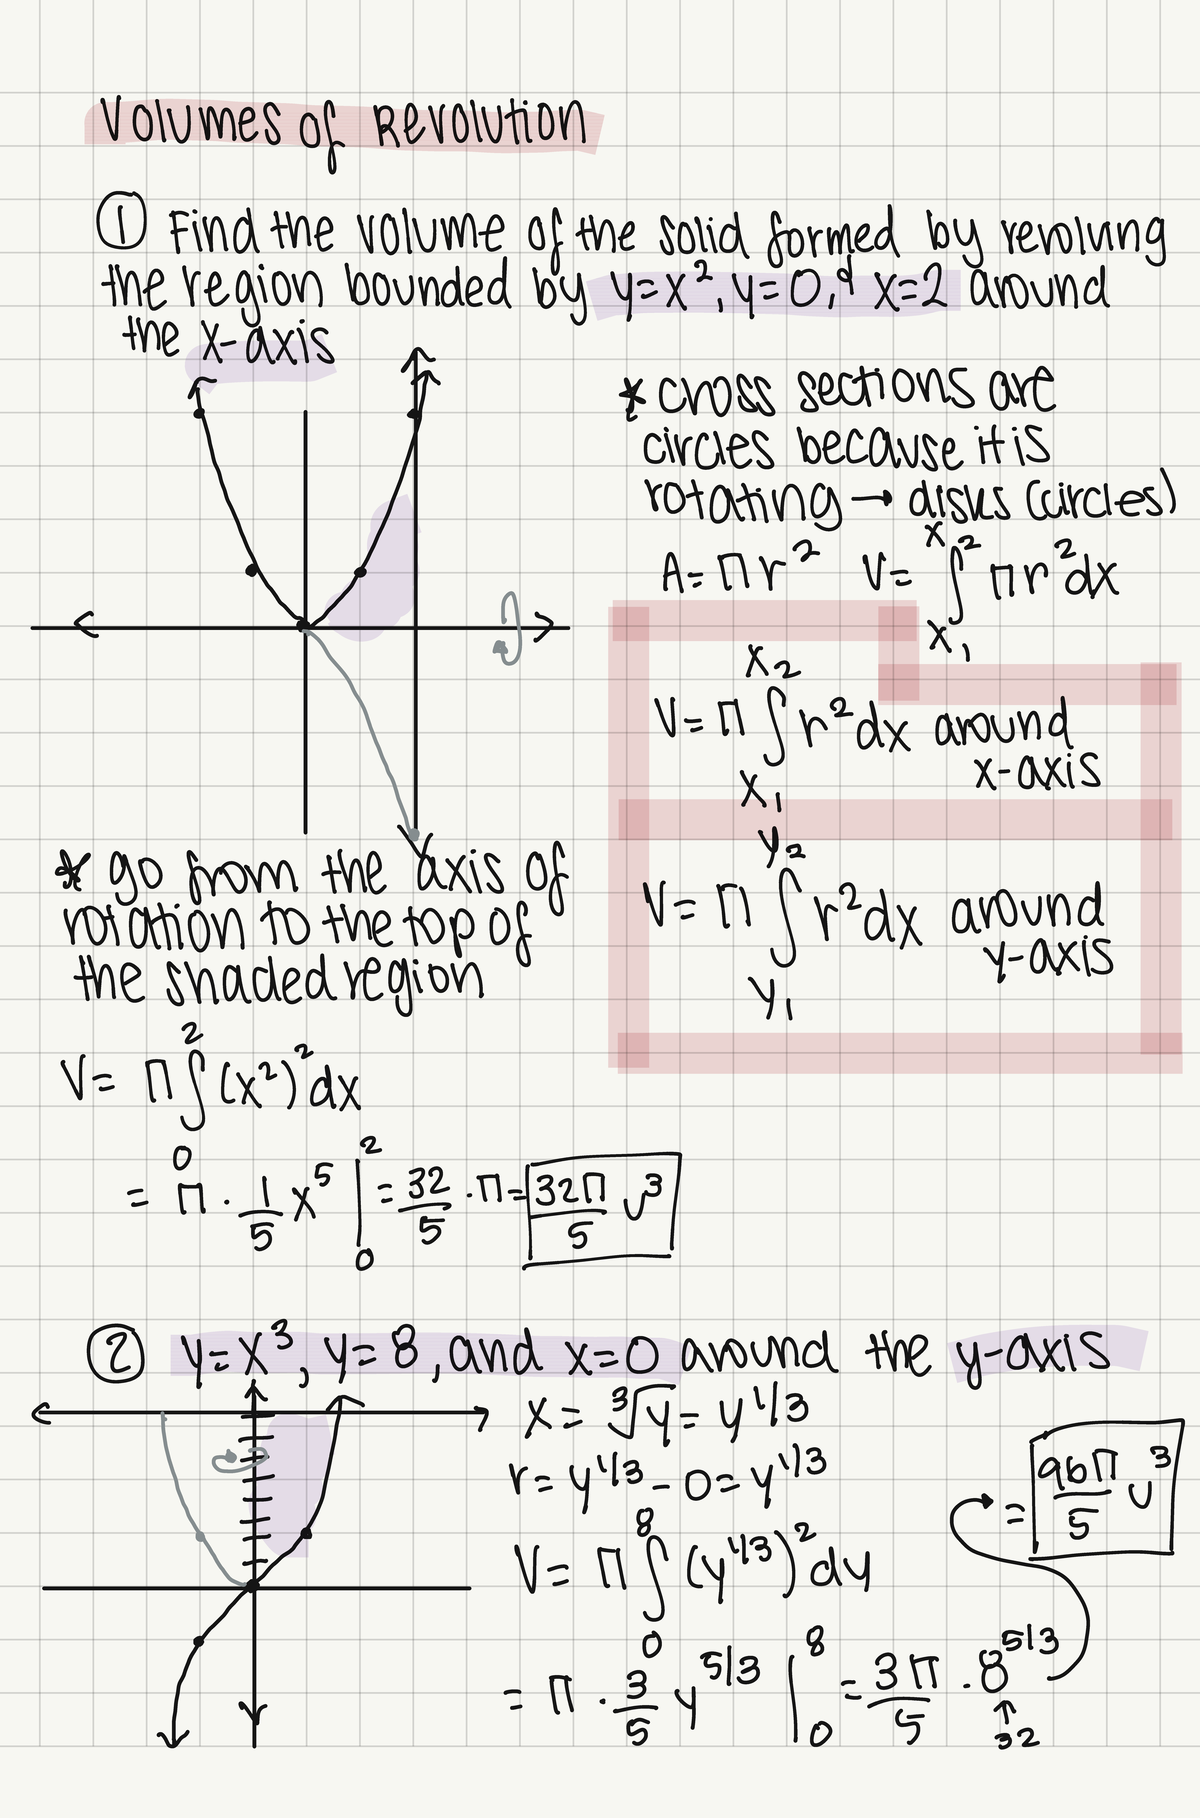 Volumes of Revolution
① Find the volume of the solid formed by revolving
the region bounded by y=x², y=0, & x=2 around
the x-axis
* cross sections are
circles because it is
rotating → disks (circles)
A= πr² V= ∫ₓ₁ˣ² πr²dx
V= π ∫ₓ₁ˣ² r²dx around
x-axis
V= π ∫ y₁ y₂ r²dx around
y-axis
* go from the axis of
rotation to the top of
the shaded region
V= π ∫₀² (x²)² dx
= π · 1/5 x⁵ |₀² = 32/5 · π = 32π/5 u³
② y=x³, y=8, and x=0 around the y-axis
x= ³√y = y^1/3
r= y^1/3 - 0 = y^1/3
V= π ∫₀⁸ (y^1/3)² dy
= π · 3/5 y^5/3 |₀⁸ = 3π/5 · 8^5/3
↑
32
= 96π/5 u³